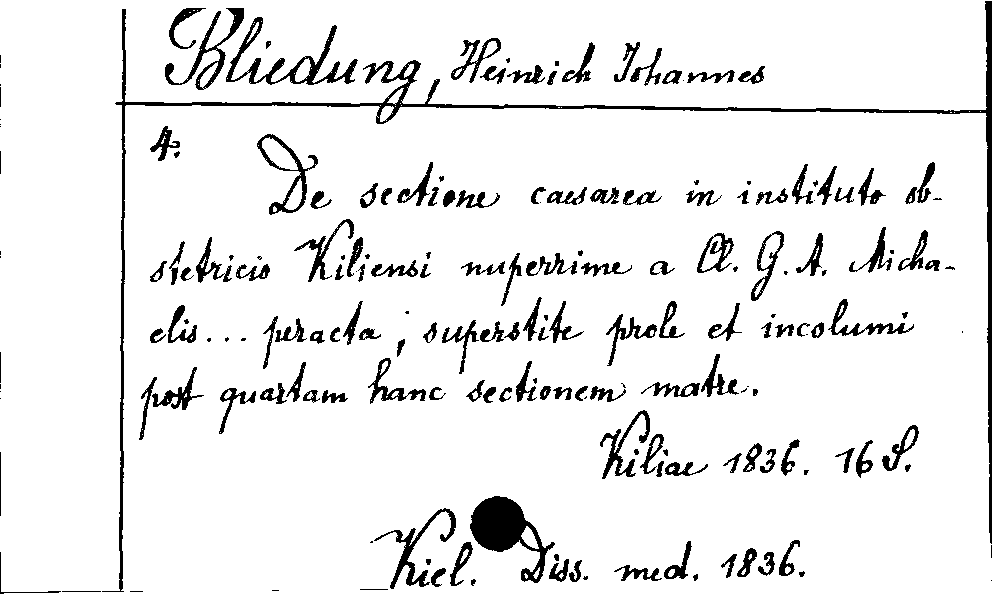 Bliedung, Heinrich Johannes
4.
De sectione caesarea in instituto ob-
stetricio Kiliensi nuperrime a Cl. G. A. Micha-
elis... peracta, superstite prole et incolumi
post quartam hanc sectionem matre.
Kiliae 1836. 16 S.
Kiel. Diss. med. 1836.